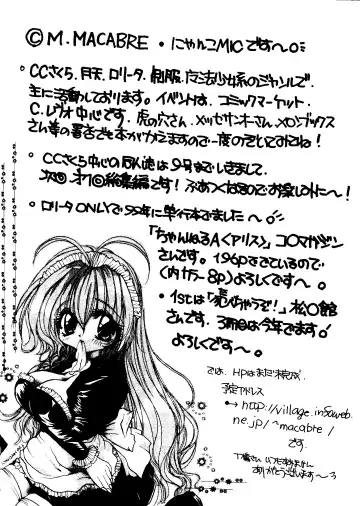 © M.MACABRE・にゃんこMICです〜。
・CCさくら、月天、ロリータ、制服、魔法少女系のジャンルで、
主に活動しております。イベントは、コミックマーケット、
C.レヴォ中心です。虎の穴さん、メッセサンオーさん、メロンブックス
さん等の書店でも本がかえますので一度のぞいてみてね!
・CCさくら中心の同人誌は9号まででました。
次回、総集編です!お楽しみに〜!
・ロリータONLYで99年に単行本でました〜。
「ちゃんねるA<アリス>」コアマガジン
さんです。196Pですているので
(内カラー8p)よろしくです〜。
・1stは「
さんです。3冊目は今年でます
よろしくです〜。
では、HPはまだ未完成。
予定アドレス
→ http://village.infoweb.
ne.jp/~macabre/
です。
いつもすみません
ありがとうございます〜